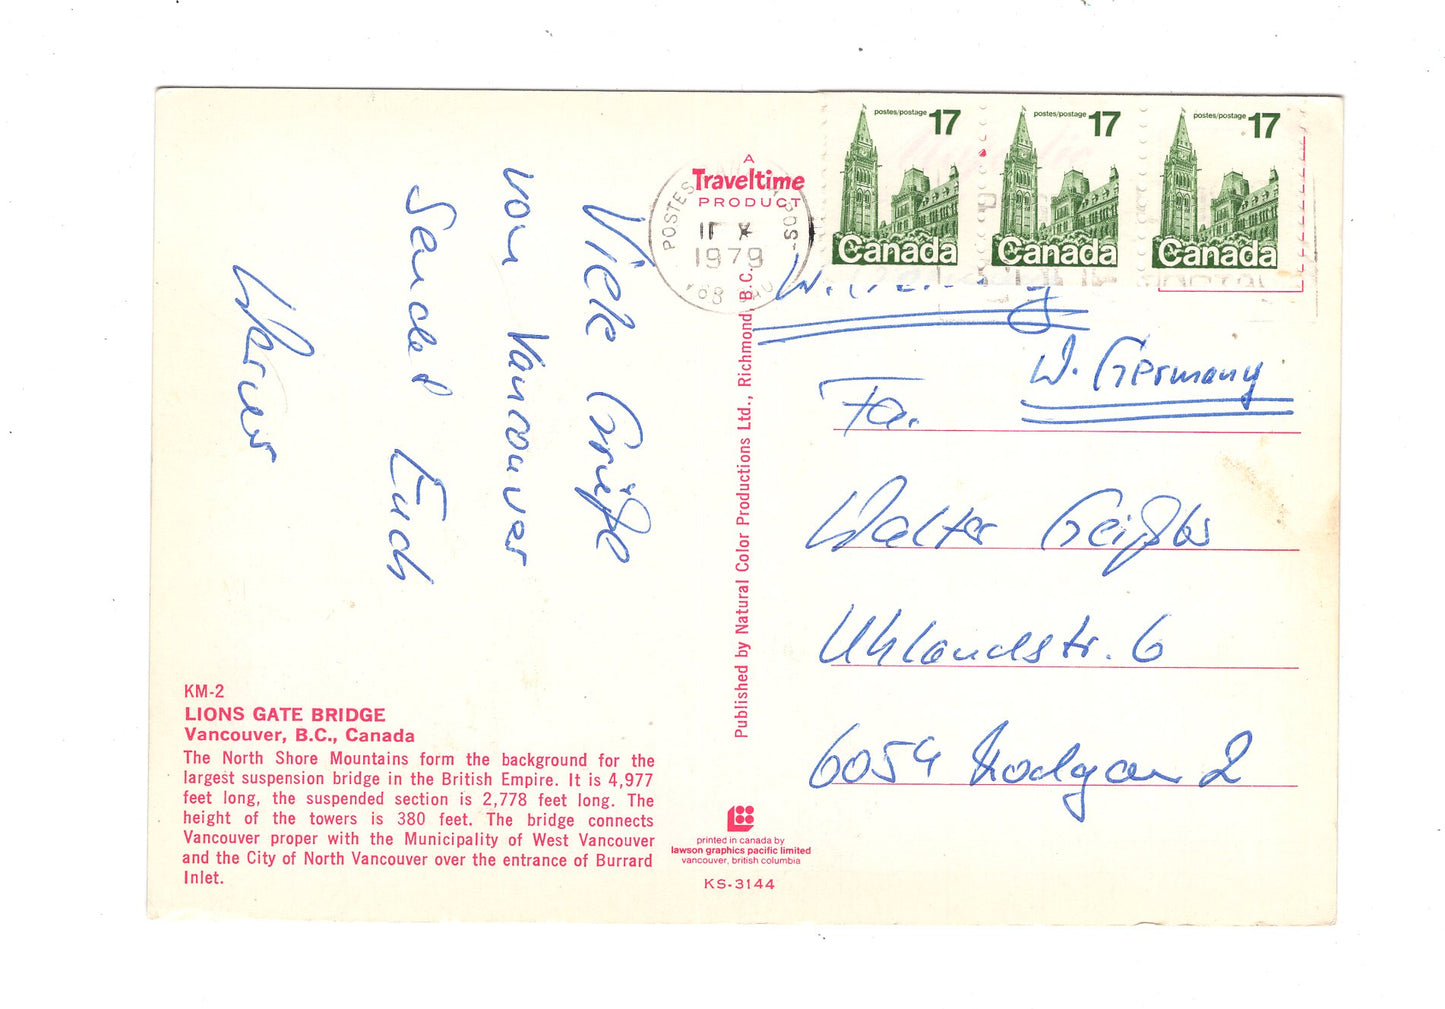 Viele Grüße
von Vancouver
Sendet Euch
Werner
A
Traveltime
PRODUCT
POSTES
1979
postes/postage 17
Canada
postes/postage 17
Canada
postes/postage 17
Canada
W. Germany
W. Germany
Fa.
Walter Geißler
Uhlandstr. 6
6054 Rodgau 2
Published by Natural Color Productions Ltd., Richmond, B.C.
KM-2
LIONS GATE BRIDGE
Vancouver, B.C., Canada
The North Shore Mountains form the background for the
largest suspension bridge in the British Empire. It is 4,977
feet long, the suspended section is 2,778 feet long. The
height of the towers is 380 feet. The bridge connects
Vancouver proper with the Municipality of West Vancouver
and the City of North Vancouver over the entrance of Burrard
Inlet.
printed in canada by
lawson graphics pacific limited
vancouver, british columbia
KS-3144